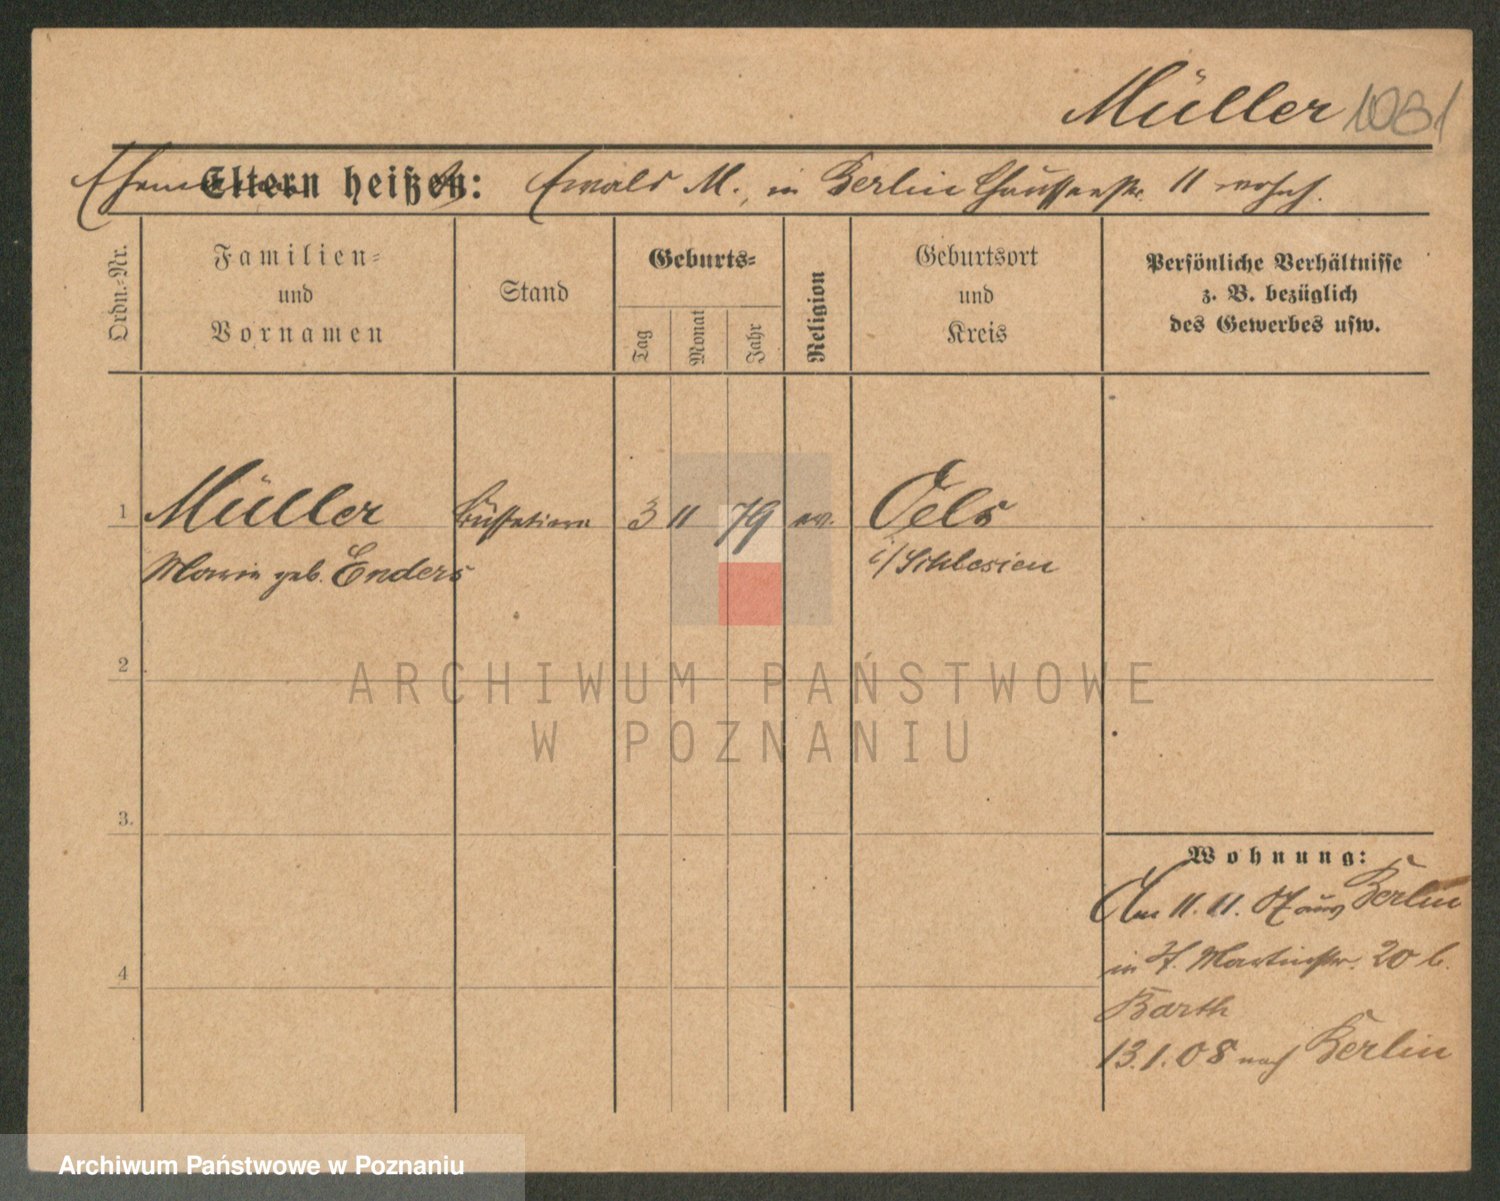 Müller 1081
Eltern heißen: Ewald M., in Berlin Chausseestr. 11 wohnh.
Ordn.-Nr.
Familien-
und
Vornamen
Stand
Geburts-
Tag
Monat
Jahr
Religion
Geburtsort
und
Kreis
Persönliche Verhältnisse
z. B. bezüglich
des Gewerbes usw.
1 Müller Büffetiere 3 11 79 ev. Oels
Marie geb. Enders i/Schlesien
2
ARCHIWUM PAŃSTWOWE
W POZNANIU
3.
Wohnung:
Am 11.11.07 aus Berlin
in St. Martinstr. 20 b.
4
Barth
13.1.08 nach Berlin
Archiwum Państwowe w Poznaniu